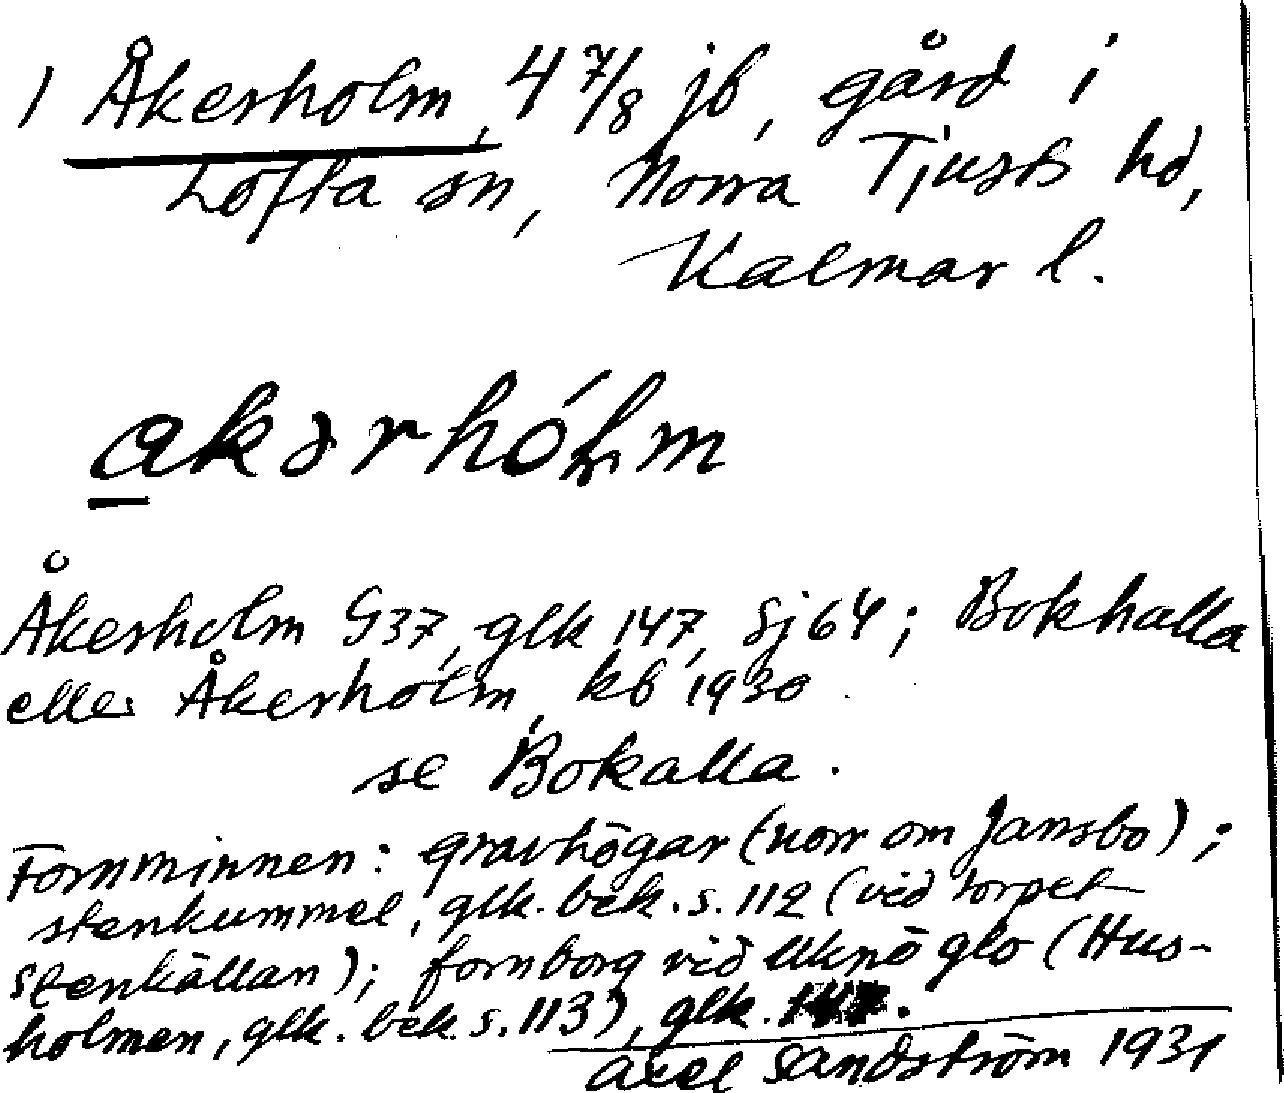 1 Åkerholm, 4 7/8 jb, gård i
Lofta sn, Norra Tjusts hd,
Kalmar l.
akərhólm
Åkerholm G37, glk 147, Sj 64; Bokhalla
eller Åkerholm, kb 1930.
se Bokalla.
Fornminnen: gravhögar (norr om Jansbo);
stenkummel, glk. bek. s. 112 (vid torpet
Stenkällan); fornborg vid Uknö glo (Hus-
holmen, glk. bek. s. 113), glk. 147.
Axel Sandström 1931